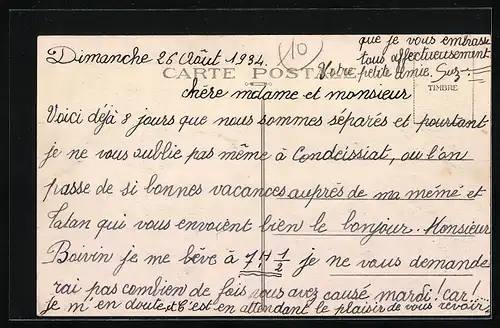 Dimanche 26 Août 1934.
10
CARTE POSTALE
TIMBRE
chère madame et monsieur
Voici déjà 8 jours que nous sommes séparés et pourtant
je ne vous oublie pas même à Condeissiat, ou l'on
passe de si bonnes vacances auprès de ma mémé et
Tatan qui vous envoient bien le bonjour. Monsieur
Boivin je me lève à 7 H 1/2 je ne vous demande
rai pas combien de fois vous avez causé mardi! car!...
je m'en doute, et C'est en attendant le plaisir de vous revoir,
que je vous embrasse
tous affectueusement
Votre petite amie. Suz